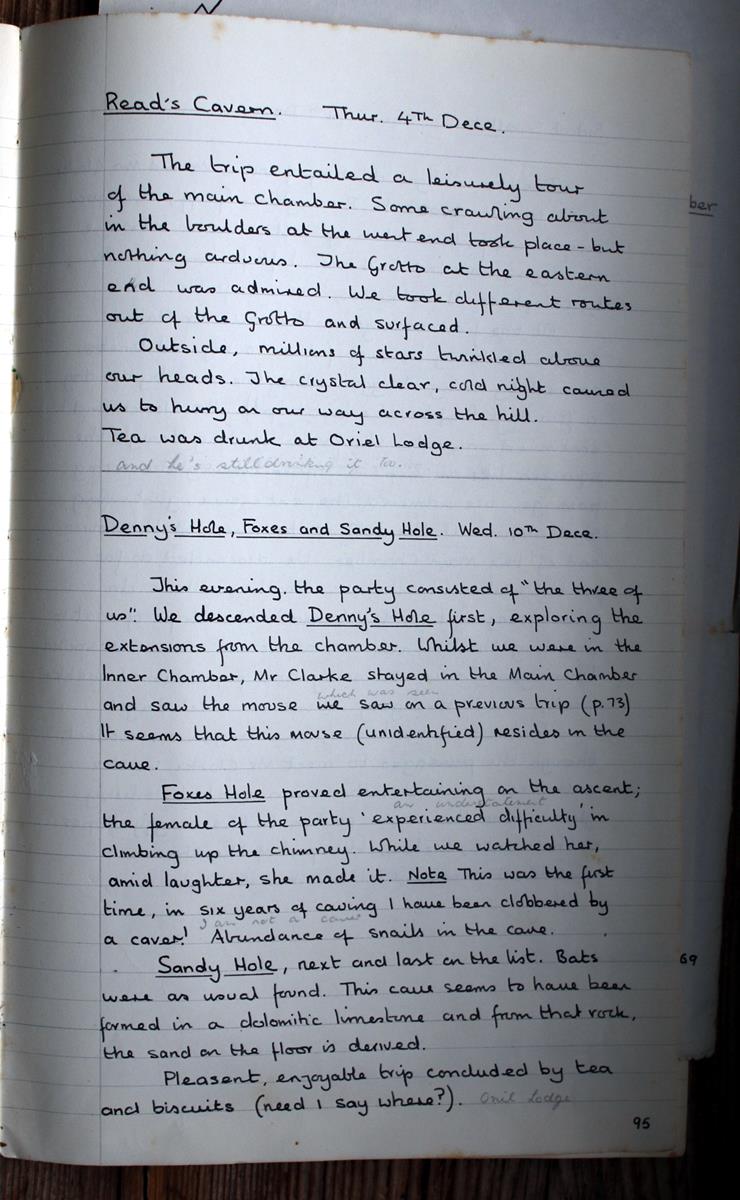 Read's Cavern. Thur. 4Th Dece.
ber
The trip entailed a leisurely tour
of the main chamber. Some crawling about
in the boulders at the west end took place - but
nothing arduous. The Grotto at the eastern
end was admired. We took different routes
out of the Grotto and surfaced.
Outside, millions of stars twinkled above
our heads. The crystal clear, cold night caused
us to hurry on our way across the hill.
Tea was drunk at Oriel Lodge.
and he's still drinking it too.
Denny's Hole, Foxes and Sandy Hole. Wed. 10Th Dece.
This evening. the party consisted of "the three of
us". We descended Denny's Hole first, exploring the
extensions from the chamber. Whilst we were in the
Inner Chamber, Mr Clarke stayed in the Main Chamber
which was seen
and saw the mouse we saw on a previous trip (p.73)
It seems that this mouse (unidentified) resides in the
cave.
Foxes Hole proved entertaining on the ascent;
an understatement
the female of the party 'experienced difficulty' in
climbing up the chimney. While we watched her,
amid laughter, she made it. Note This was the first
time, in six years of caving I have been clobbered by
I am not a caver
a caver! Abundance of snails in the cave.
Sandy Hole, next and last on the list. Bats
69
were as usual found. This cave seems to have been
formed in a dolomitic limestone and from that rock,
the sand on the floor is derived.
Pleasent, enjoyable trip concluded by tea
and biscuits (need I say where?). Oriel Lodge
95